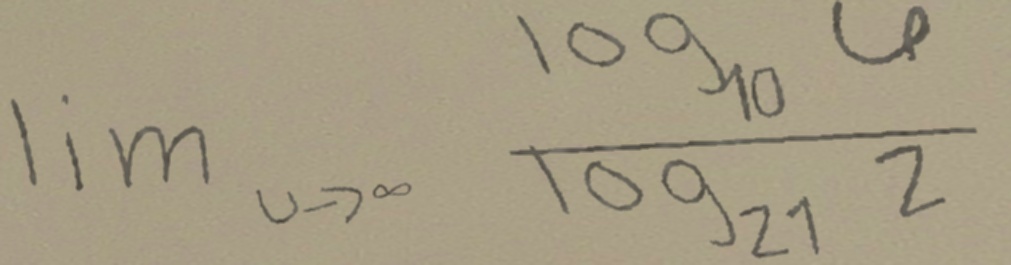 lim u→∞ log₁₀ φ / log₂₁ 2